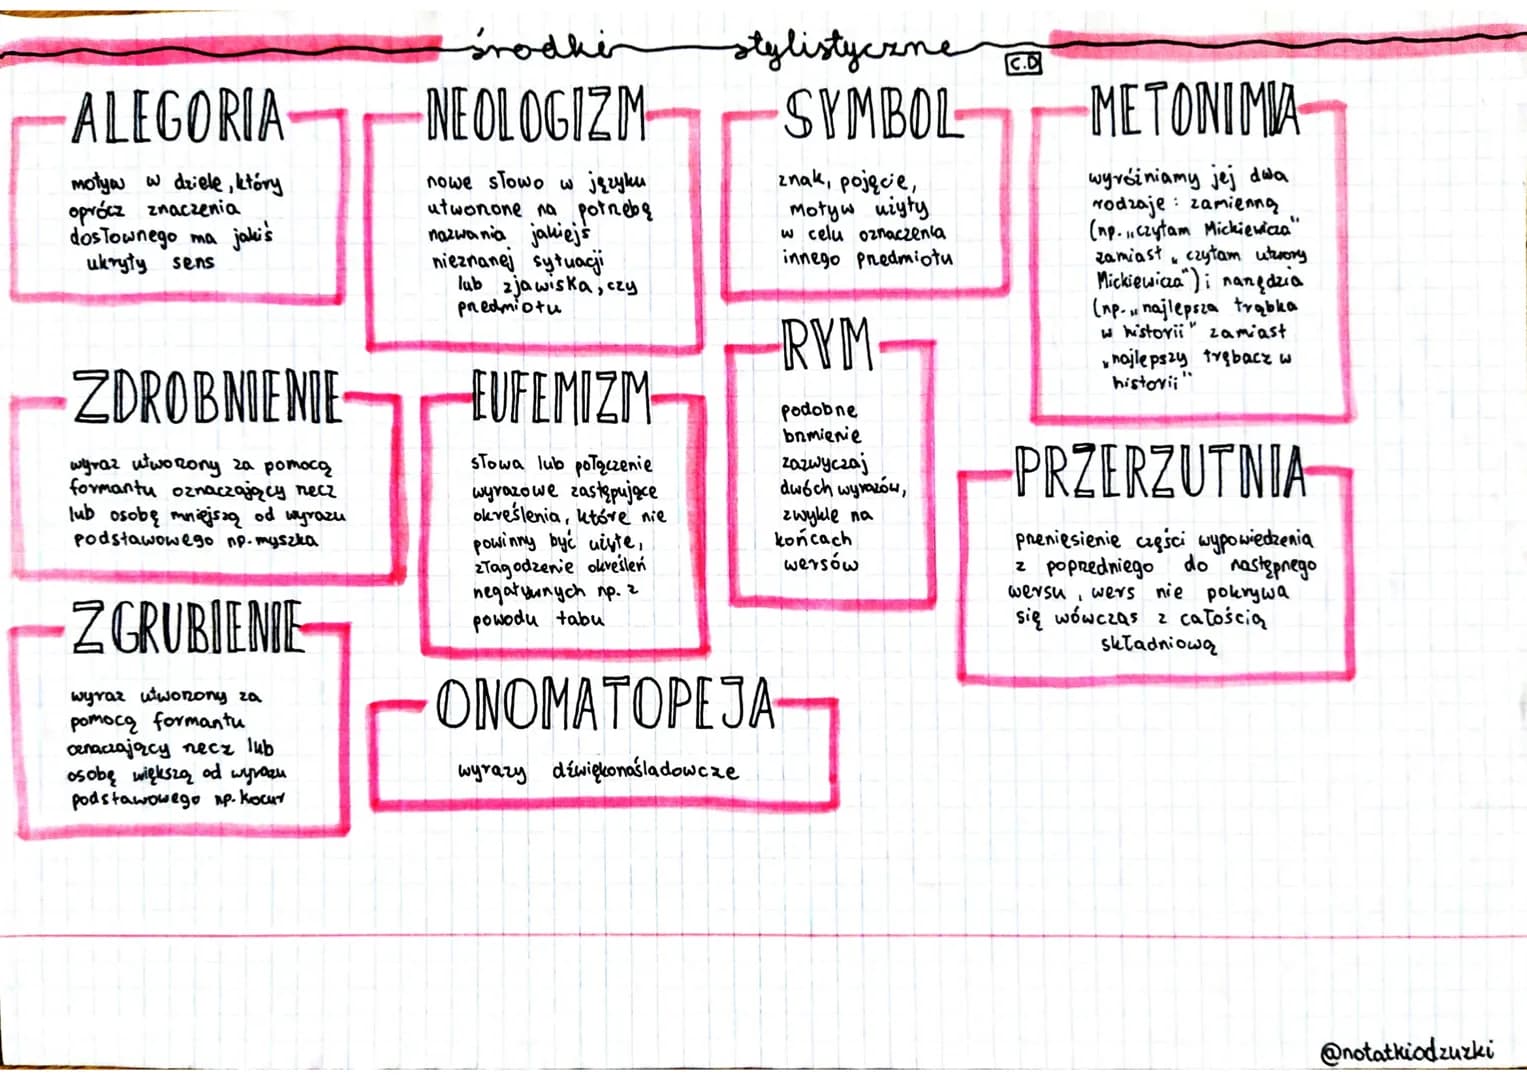 środki stylistyczne
C.D
ALEGORIA
motyw w dziele, który
oprócz znaczenia
dosłownego ma jakiś
ukryty sens
NEOLOGIZM
nowe słowo w języku
utworzone na potrzebę
nazwania jakiejś
nieznanej sytuacji
lub zjawiska, czy
przedmiotu
SYMBOL
znak, pojęcie,
motyw użyty
w celu oznaczenia
innego przedmiotu
METONIMIA
wyróżniamy jej dwa
rodzaje: zamienną
(np. „czytam Mickiewicza"
zamiast „czytam utwory
Mickiewicza") i narzędzia
(np. „najlepsza trąbka
w historii" zamiast
„najlepszy trębacz w
historii"
ZDROBNIENIE
wyraz utworzony za pomocą
formantu oznaczający rzecz
lub osobę mniejszą od wyrazu
podstawowego np. myszka
EUFEMIZM
słowa lub połączenie
wyrazowe zastępujące
określenia, które nie
powinny być użyte,
złagodzenie określeń
negatywnych np. z
powodu tabu
RYM
podobne
brzmienie
zazwyczaj
dwóch wyrazów,
zwykle na
końcach
wersów
PRZERZUTNIA
przeniesienie części wypowiedzenia
z poprzedniego do następnego
wersu, wers nie pokrywa
się wówczas z całością
składniową
ZGRUBIENIE
wyraz utworzony za
pomocą formantu
oznaczający rzecz lub
osobę większą od wyrazu
podstawowego np. kocur
ONOMATOPEJA
wyrazy dźwiękonaśladowcze
@notatkiodzuzki